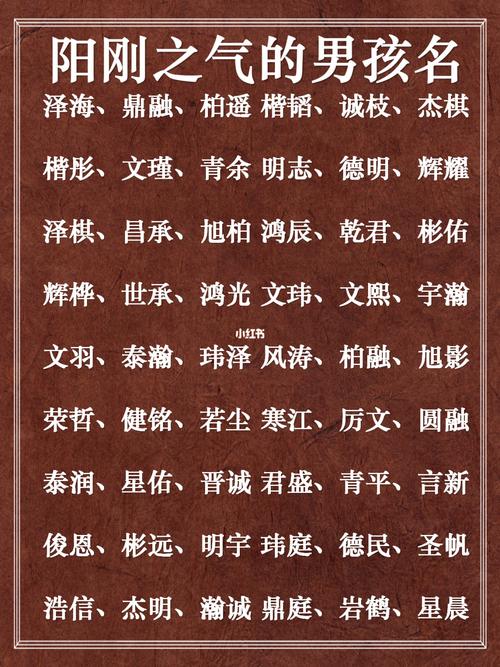 阳刚之气的男孩名
泽海、鼎融、柏遥 楷韬、诚枝、杰棋
楷彤、文瑾、青余 明志、德明、辉耀
泽棋、昌承、旭柏 鸿辰、乾君、彬佑
辉桦、世承、鸿光 文玮、文熙、宇瀚
小红书
文羽、泰瀚、玮泽 风涛、柏融、旭影
荣哲、健铭、若尘 寒江、厉文、圆融
泰润、星佑、晋诚 君盛、青平、言新
俊恩、彬远、明宇 玮庭、德民、圣帆
浩信、杰明、瀚诚 鼎庭、岩鹤、星晨